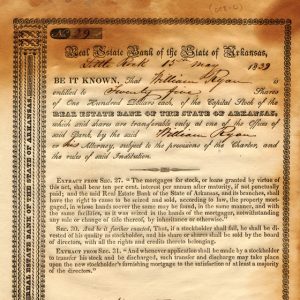 No. 29
Real Estate Bank of the State of Arkansas,
Little Rock 15th May 1839
BE IT KNOWN, That William Ryan is
entitled to Twenty five Shares
of One Hundred Dollars each, of the Capital Stock of the
REAL ESTATE BANK OF THE STATE OF ARKANSAS,
which said shares are transferable only at one of the Offices of
said Bank, by the said William Ryan
or his Attorney, subject to the provisions of the Charter, and
the rules of said Institution.
EXTRACT FROM SEC. 27. "The mortgages for stock, or loans granted by virtue of
this act, shall bear ten per cent. interest per annum after maturity, if not punctually
paid; and the said Real Estate Bank of the State of Arkansas, and its branches, shall
have the right to cause to be seized and sold, according to law, the property mort-
gaged, in whose hands soever the same may be found, in the same manner, and with
the same facilities, as it was seized in the hands of the mortgagors, notwithstanding
any sale or change of title thereof, by inheritance or otherwise."
SEC. 30. And be it further enacted, That, if a stockholder shall fail, he shall be di-
vested of his quality as stockholder, and his share or shares shall be sold by the board
of directors, with all the rights and credits thereto belonging.
EXTRACT FROM SEC. 31. "And whenever application shall be made by a stockholder
to transfer his stock and be discharged, such transfer and discharge may take place
upon the new stockholder's furnishing mortgage to the satisfaction of at least a majority
of the directors."
REAL ESTATE BANK OF THE STATE OF ARKANSAS